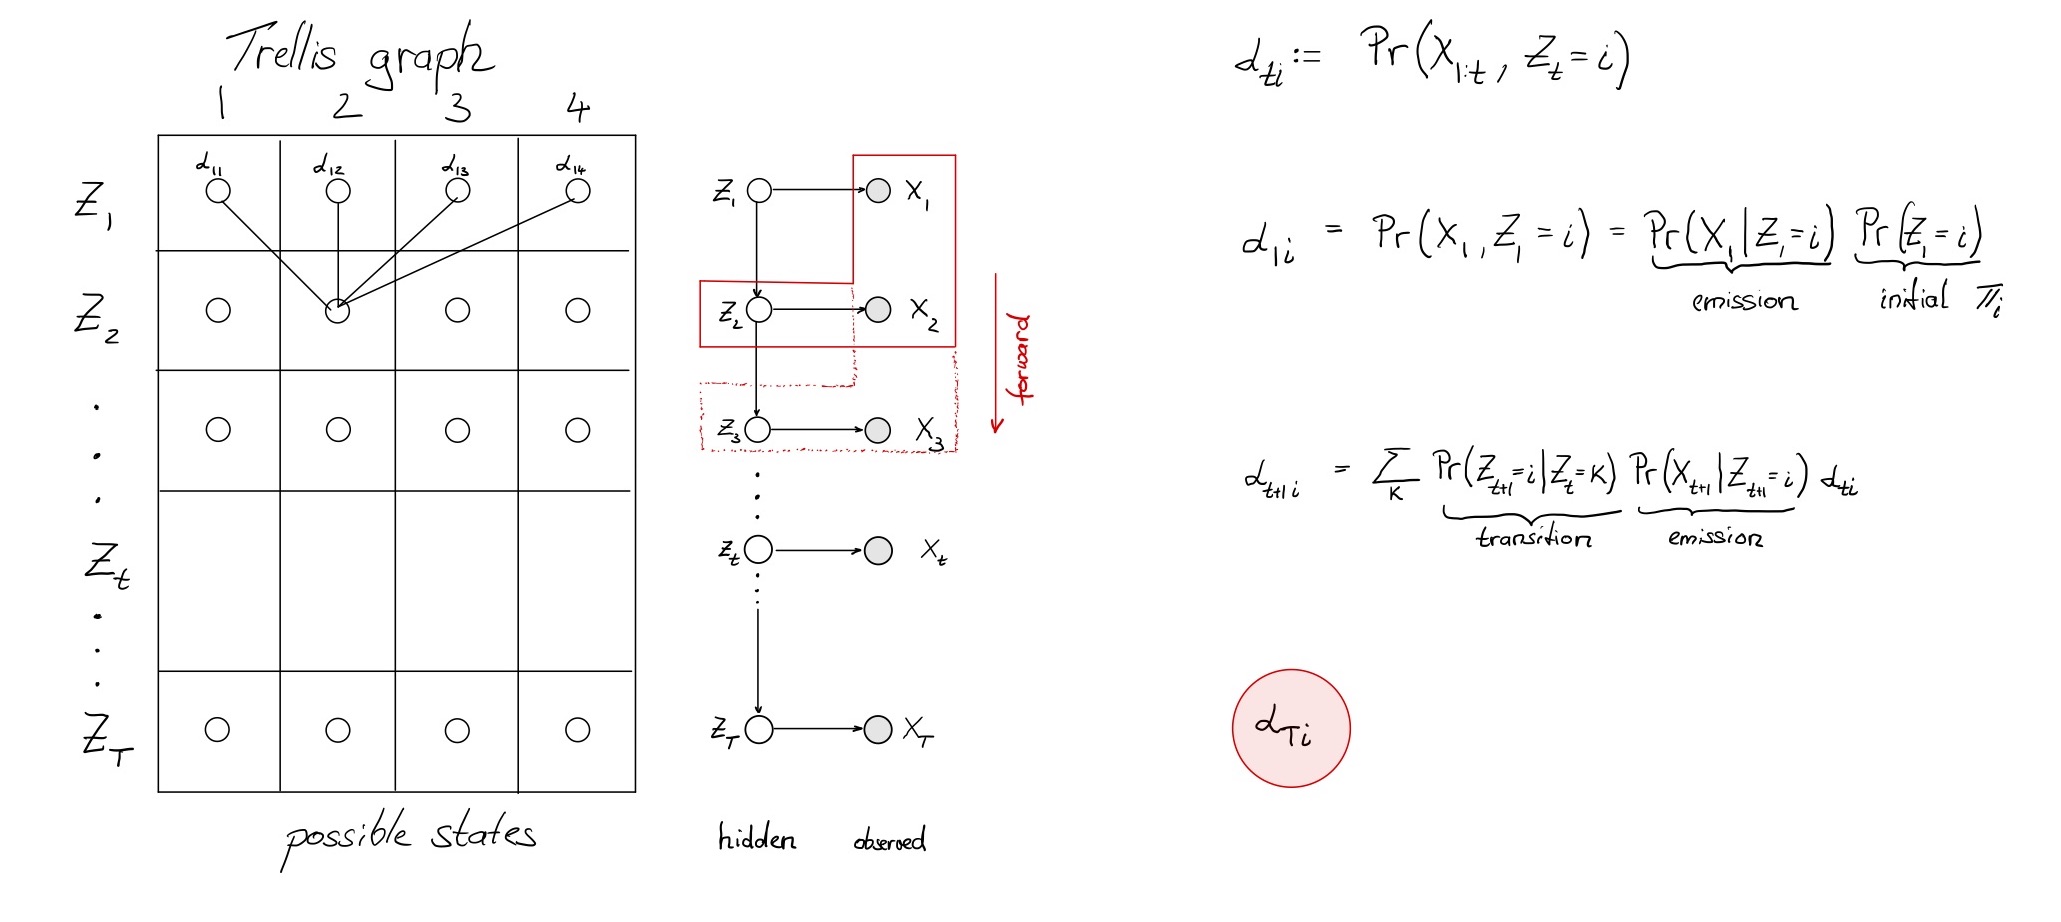 Trellis graph
1 2 3 4
α₁₁ α₁₂ α₁₃ α₁₄
Z₁
Z₂
.
.
.
Z_t
.
.
.
Z_T
possible states
Z₁ X₁
Z₂ X₂
Z₃ X₃
Z_t X_t
Z_T X_T
hidden observed
forward
α_{ti} := Pr(X_{1:t}, Z_t = i)
α_{1i} = Pr(X₁, Z₁ = i) = Pr(X₁ | Z₁ = i) Pr(Z₁ = i)
emission initial π_i
α_{t+1 i} = Σ_K Pr(Z_{t+1} = i | Z_t = K) Pr(X_{t+1} | Z_{t+1} = i) α_{ti}
transition emission
α_{Ti}